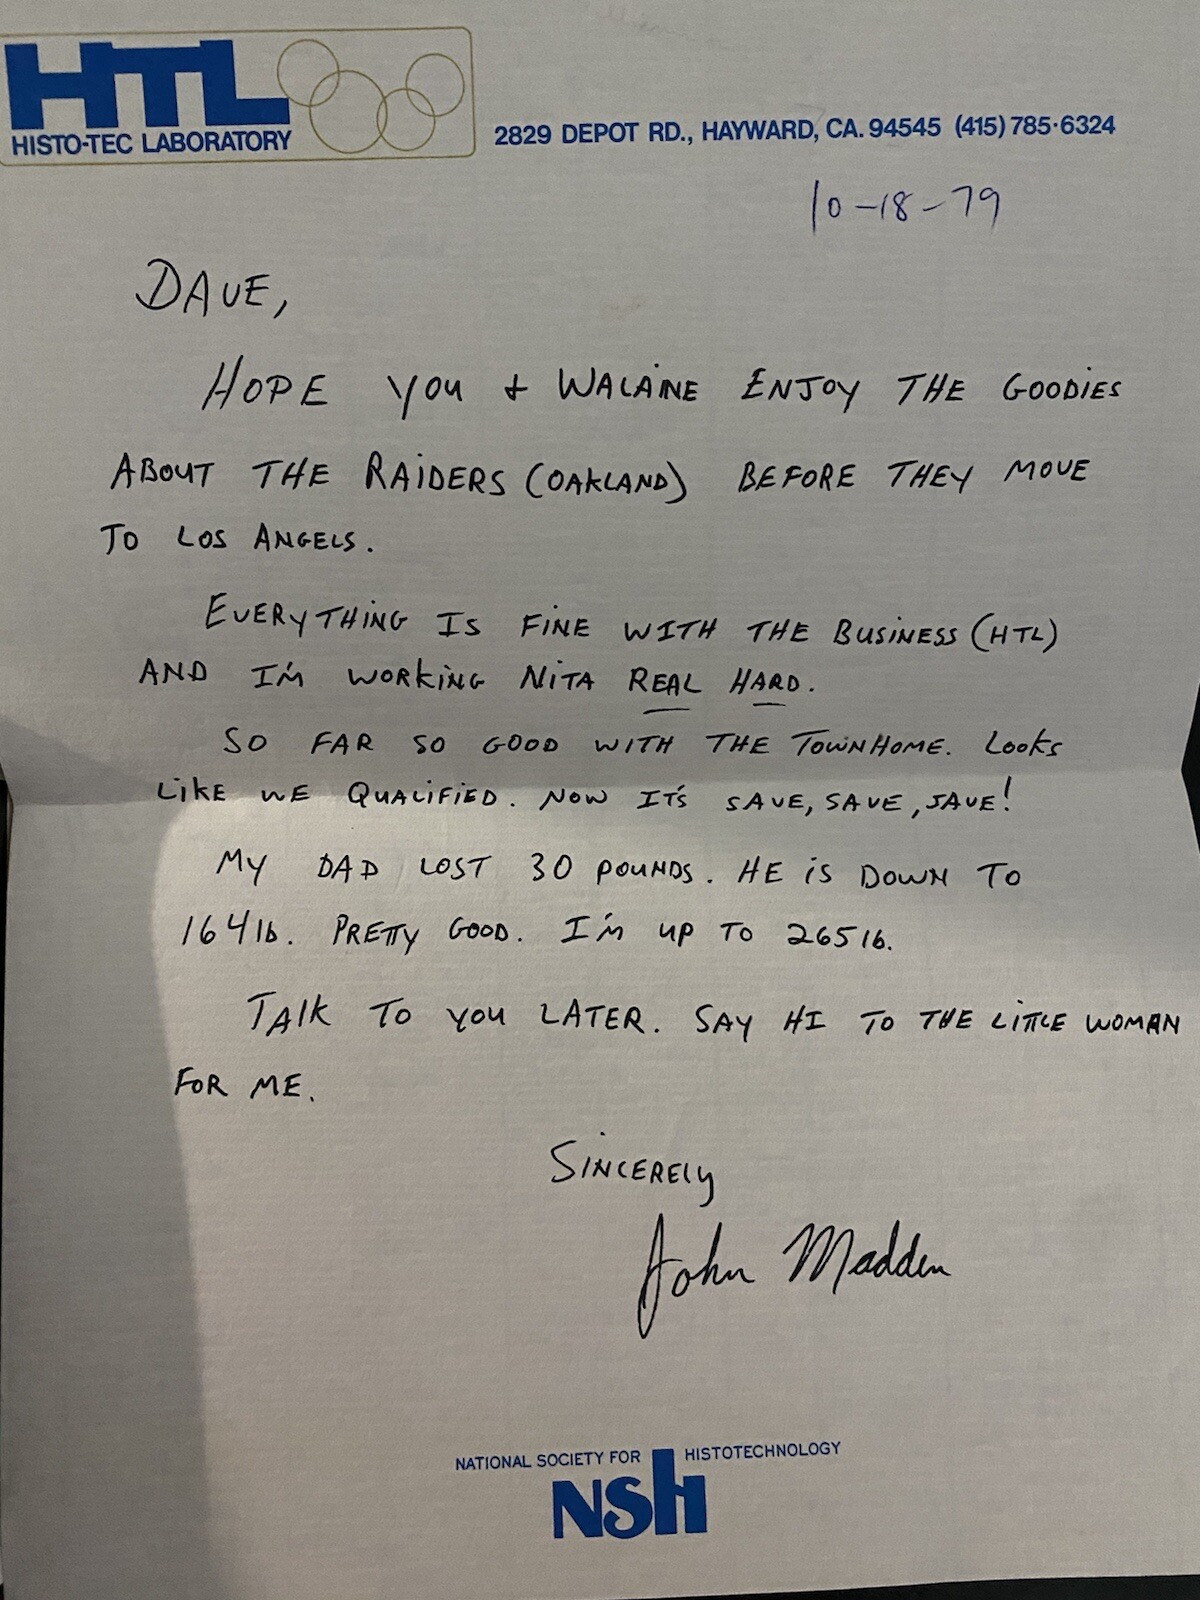 HTL
HISTO-TEC LABORATORY
2829 DEPOT RD., HAYWARD, CA. 94545 (415) 785·6324
10-18-79
DAVE,
HOPE YOU + WALAINE ENJOY THE GOODIES
ABOUT THE RAIDERS (OAKLAND) BEFORE THEY MOVE
TO LOS ANGELS.
EVERYTHING IS FINE WITH THE BUSINESS (HTL)
AND I'M WORKING NITA REAL HARD.
SO FAR SO GOOD WITH THE TOWNHOME. LOOKS
LIKE WE QUALIFIED. NOW IT'S SAVE, SAVE, SAVE!
MY DAD LOST 30 POUNDS. HE IS DOWN TO
164 lb. PRETTY GOOD. I'M UP TO 265 lb.
TALK TO YOU LATER. SAY HI TO THE LITTLE WOMAN
FOR ME.
SINCERELY
John Madden
NATIONAL SOCIETY FOR HISTOTECHNOLOGY
NSH